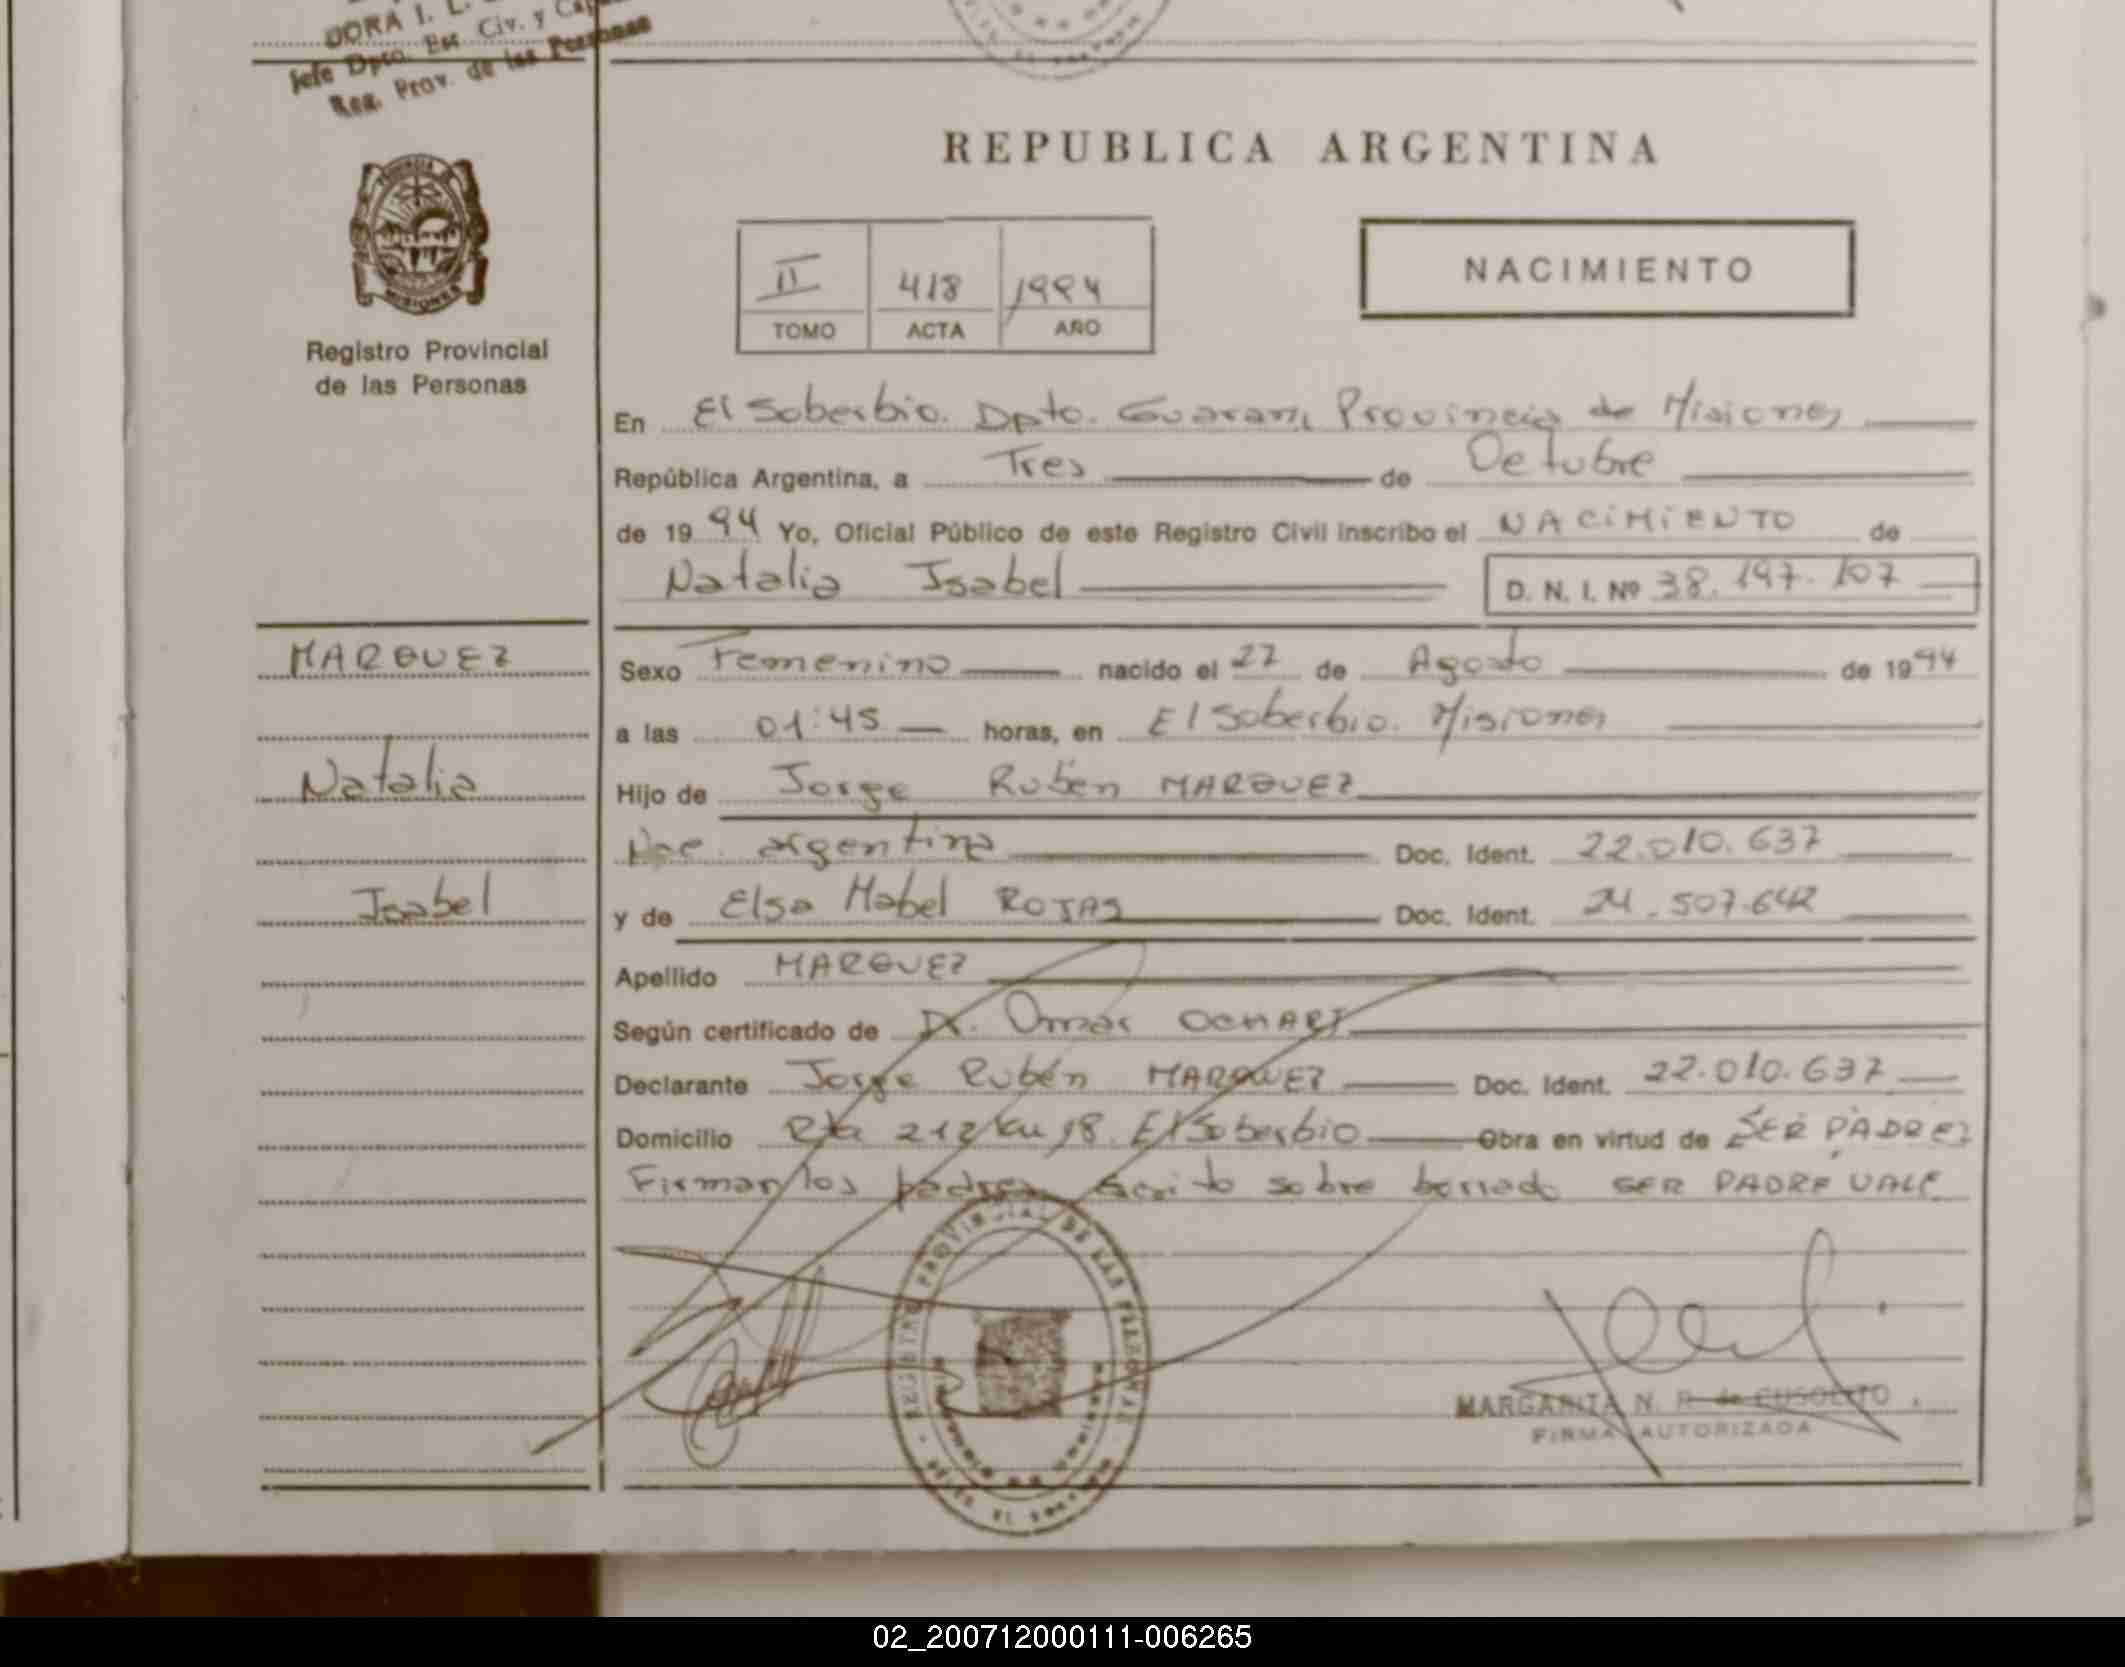 DORA I. L.
Jefe Dpto. Est. Civ. y Cap
Reg. Prov. de las Personas
REPUBLICA ARGENTINA
PROVINCIA
MISIONES
Registro Provincial
de las Personas
II 418 1994
TOMO ACTA AÑO
NACIMIENTO
En El Soberbio. Dpto. Guarani Provincia de Misiones
República Argentina, a Tres de Octubre
de 1994 Yo, Oficial Público de este Registro Civil inscribo el NACIMIENTO de
Natalia Isabel D. N. I. Nº 38.197.107
MARQUEZ
Natalia
Isabel
Sexo Femenino nacido el 27 de Agosto de 1994
a las 01:45 horas, en El Soberbio. Misiones
Hijo de Jorge Rubén MARQUEZ
Nac. argentina Doc. Ident. 22.010.637
y de Elsa Mabel ROJAS Doc. Ident. 24.507.642
Apellido MARQUEZ
Según certificado de Dr. Omar
Declarante Jorge Rubén MARQUEZ Doc. Ident. 22.010.637
Domicilio Rta 212 Km 18. El Soberbio Obra en virtud de SER PADRE
Firman los padres Escrito sobre borrado SER PADRE VALE
PROVINCIAL DE LAS PERSONAS
MARGARITA N. R. de
FIRMA AUTORIZADA
02_200712000111-006265